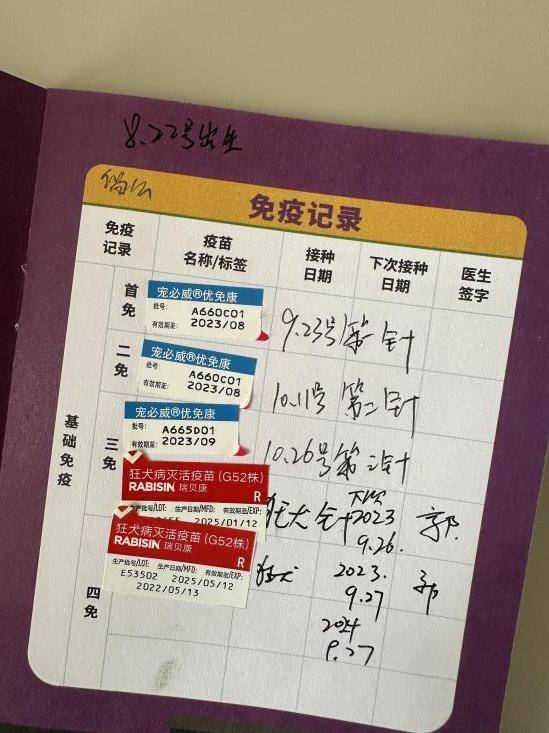 8.22号出生
免疫记录
免疫记录 疫苗名称/标签 接种日期 下次接种日期 医生签字
基础免疫
首免
宠必威®优免康
批号: A660C01
有效期至: 2023/08
9.23号 第一针
二免
宠必威®优免康
批号: A660C01
有效期至: 2023/08
10.11号 第二针
三免
宠必威®优免康
批号: A665D01
有效期至: 2023/09
10.26号 第三针
狂犬病灭活疫苗(G52株)
RABISIN 瑞贝康 R
生产批号/LOT: 生产日期/MFD: 有效期至/EXP:
2025/01/12
狂犬针 下次 2023 9.26. 郭
四免
狂犬病灭活疫苗(G52株)
RABISIN 瑞贝康 R
生产批号/LOT: 生产日期/MFD: 有效期至/EXP:
E53502 2025/05/12
2022/05/13
狂犬 2023. 9.27 郭
2024
9.27